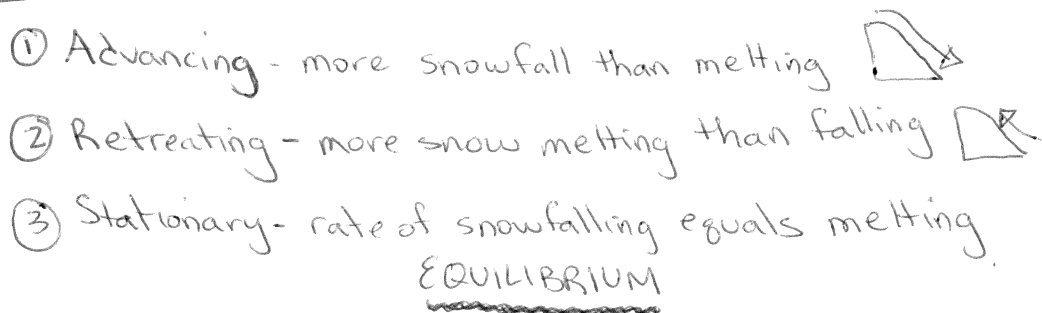 ① Advancing - more snowfall than melting
② Retreating - more snow melting than falling
③ Stationary - rate of snowfalling equals melting
EQUILIBRIUM